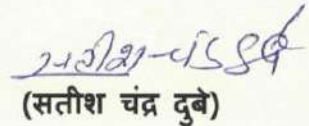 सतीश चंद्र दुबे
(सतीश चंद्र दुबे)